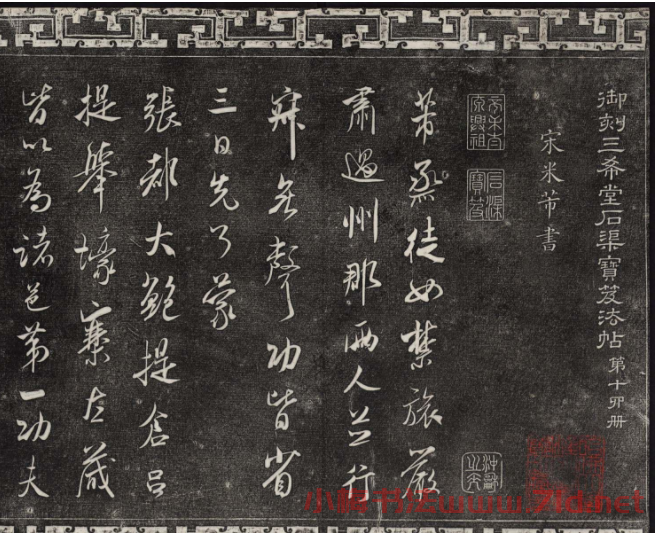 御刻三希堂石渠寶笈法帖第十四册
宋米芾書
芾烝徒如禁旅嚴
肅過州郡兩人並行
寐無聲功皆省
三日先了蒙
張都大鮑提倉呂
提舉壕寨左藏
皆以為諸邑第一功夫
石渠寶笈
小楷书法www.7ld.net